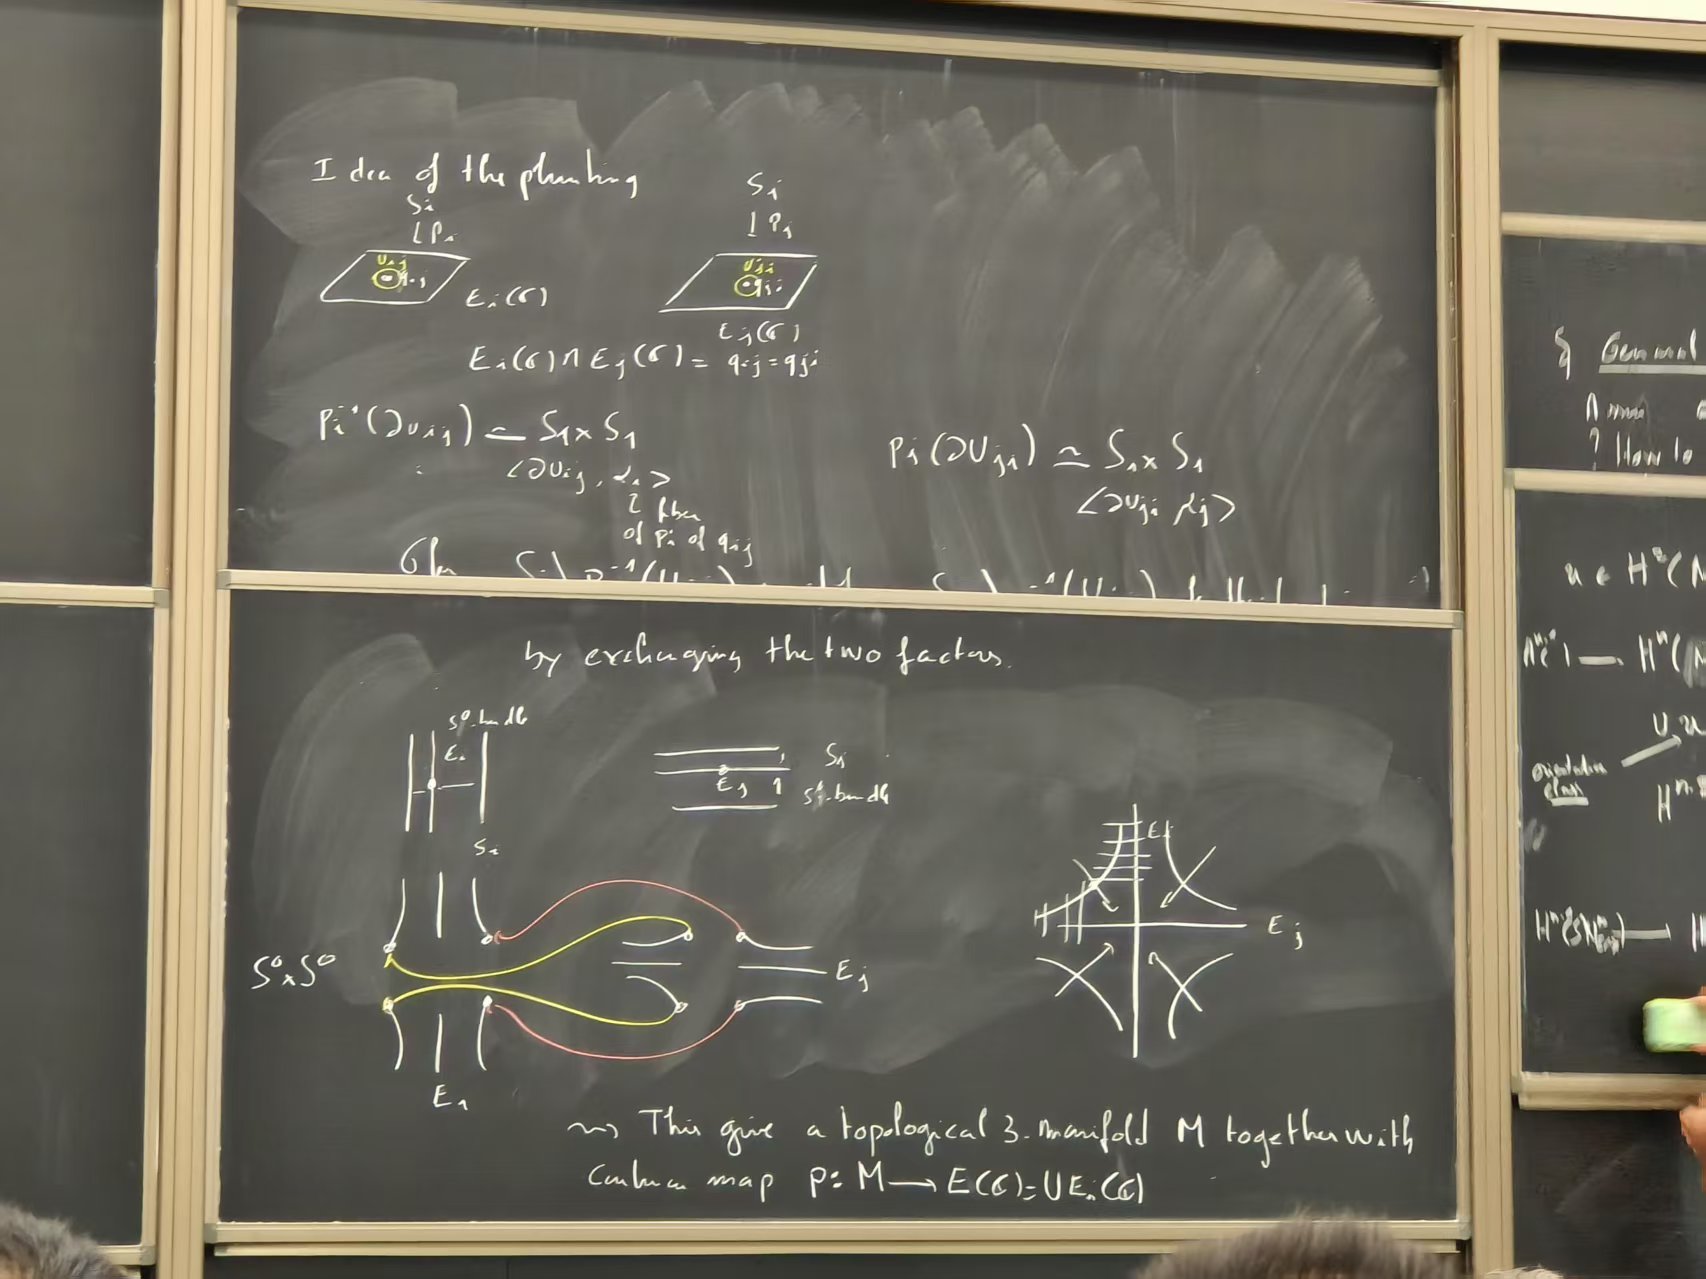 Idea of the plumbing
Si
↓ Pi
Uij
qij
Ei(σ)
Sj
↓ Pj
Uji
qji
Ej(σ)
Ei(σ) ∩ Ej(σ) = qij = qji
Pi⁻¹(∂Uij) ≃ S1 × S1
<∂Uij, αi>
fiber
of Pi of qij
Pj(∂Uji) ≃ S1 × S1
<∂Uji, αj>
by exchanging the two factors.
S⁰-bundle
Ei
Si
Sj
Ej
S⁰-bundle
S⁰×S⁰
Ej
Ei
Ei
Ej
⇝ This give a topological 3-manifold M together with
map p: M → E(σ) = ∪Ei(σ)
§ General
? How to
u ∈ H²(
→ Hⁿ(
orientation
class
U u